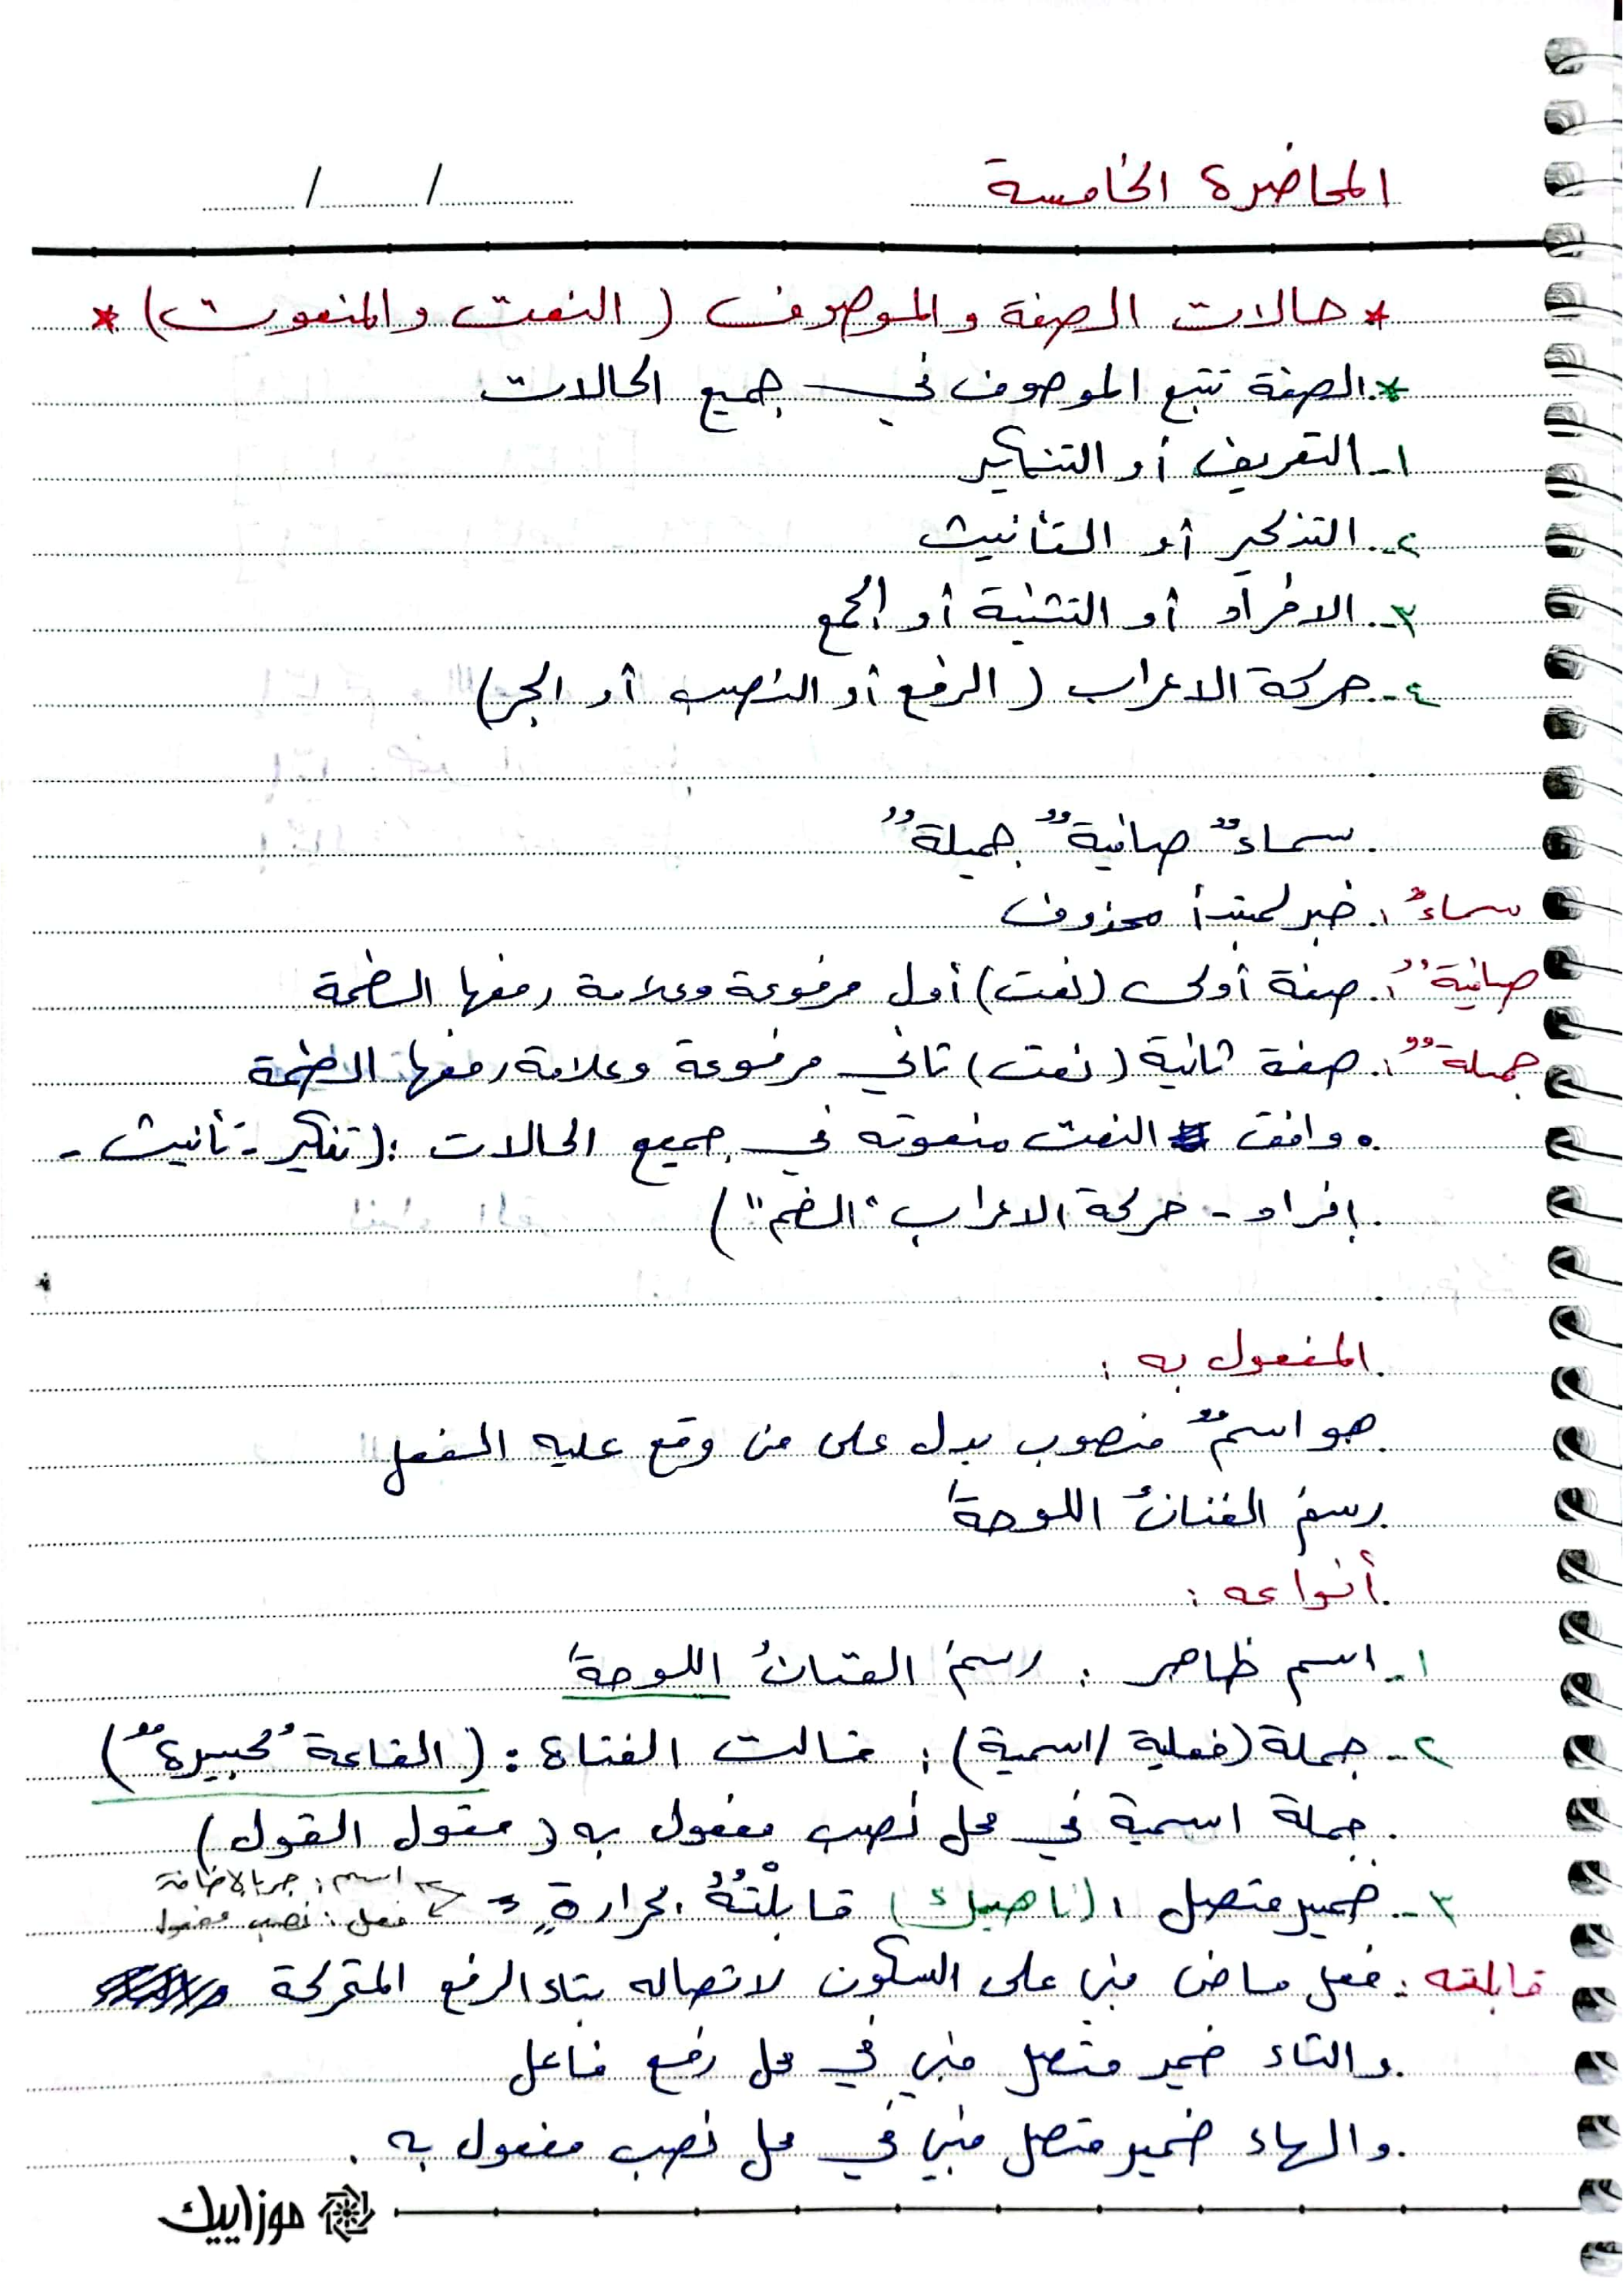 المحاضرة الخامسة
/ /
* حالات الصفة والموصوف (النعت والمنعوت) *
* الصفة تتبع الموصوف في جميع الحالات
١- التعريف أو التنكير
٢- التذكير أو التأنيث
٣- الافراد أو التثنية أو الجمع
٤- حركة الاعراب (الرفع أو النصب أو الجر)
سماءٌ صافيةٌ جميلةٌ
سماءٌ: خبر لمبتدأ محذوف
صافيةٌ: صفة أولى (نعت) أول مرفوعة وعلامة رفعها الضمة
جميلةٌ: صفة ثانية (نعت) ثاني مرفوعة وعلامة رفعها الضمة
• وافق النعت منعوته في جميع الحالات: (تنكير - تأنيث -
إفراد - حركة الاعراب "الضم")
المفعول به:
هو اسمٌ منصوب يدل على من وقع عليه الفعل
رسمَ الفنانُ اللوحةَ
أنواعه:
١- اسم ظاهر: رسمَ الفنانُ اللوحةَ
٢- جملة (فعلية / اسمية): قالت الفتاة: (القاعةُ كبيرةٌ)
جملة اسمية في محل نصب مفعول به (مقول القول)
٣- ضمير متصل: (ناهيك) قابلْتُهُ بحرارةٍ =>
اسم: جر بالاضافة
فعل: نصب مفعول
قابلته: فعل ماض مبني على السكون لاتصاله بتاء الرفع المتحركة
والتاء ضمير متصل مبني في محل رفع فاعل
والهاء ضمير متصل مبني في محل نصب مفعول به.
موزاييك